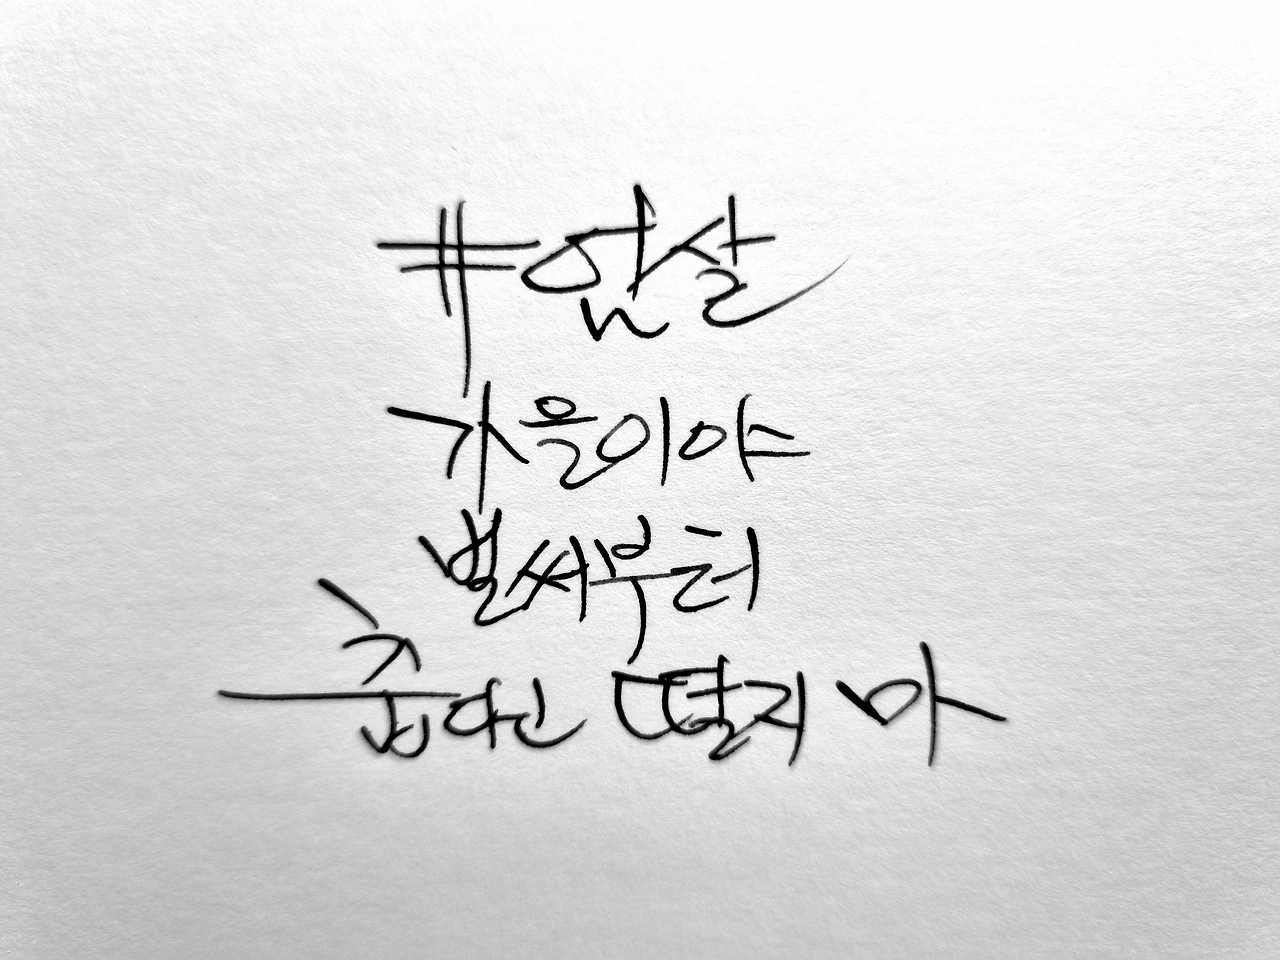 #엄살
가을이야
벌써부터
춥다고 떨지 마